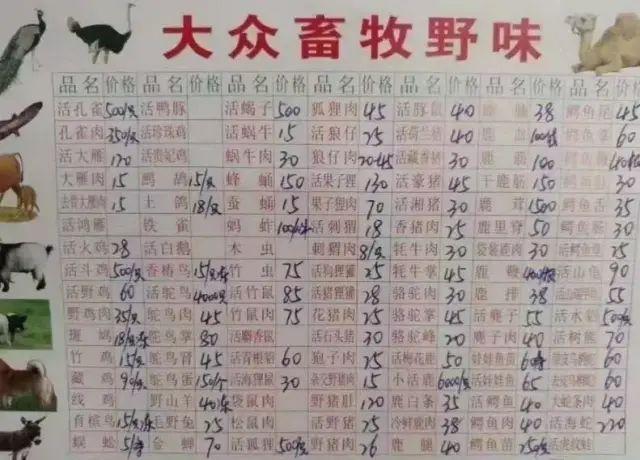 大众畜牧野味
品名 价格 品名 价格 品名 价格 品名 价格 品名 价格 品名 价格 品名 价格
活孔雀 500/只 活鸭豚 活蝎子 500 狐狸肉 45 活豚鼠 40 38 鳄鱼尾 45
孔雀肉 350/只 活珍珠鸡 活蜗牛 15 活狼仔 25 活荷兰猪 40 鹿血 鳄鱼掌 60
活大雁 120 活贵妃鸡 蜗牛肉 30 狼仔肉 活藏香猪 30 鹿筋 100
大雁肉 15 鹧鸪 15/只 蜂蛹 150 活果子狸 130 活豪猪 45 干鹿筋 150 30
去骨大雁肉 15 土鸽 18/只 蚕蛹 15 果子狸肉 70 活湘猪 30 鹿茸 1500 鳄鱼舌 35
活鸿雁 铁雀 蚂蚱 活刺猬 18 香猪肉 25 鹿里脊 50 鳄鱼肠 30
活火鸡 28 活白鹅 木虫 刺猬肉 8/只 牦牛肉 30 袋装鹿肉 30 活鳄鱼龟 25
活斗鸡 500/只 香椿鸟 竹虫 75 活狗狸獾 25 牦牛掌 45 鹿鞭 活山龟 90
活野鸡 60 活鸵鸟 4000/只 活竹鼠 85 活猪狸獾 28 骆驼肉 30 鹿排 38 55
野鸡肉 35/只 鸵鸟肉 45 竹鼠肉 75 花猪肉 25 骆驼掌 45 活麂子 55 活水蛇
斑鸠 鸵鸟掌 80 活麝香鼠 活石头猪 30 骆驼峰 20 麂子肉 40 活树熊 70
竹鸡 15/只 鸵鸟胃 45 活青根貂 60 狍子肉 25 活梅花鹿 50 娃娃鱼苗 60
藏鸡 90/只 鸵鸟蛋 150/个 活海狸鼠 30 杂交野猪肉 15 小活鹿 6000/只 活娃娃鱼 65 60
线鸡 野山羊 袋鼠肉 野猪肚 120 鹿白条 35 活鳄鱼 40 大蛇条肉 40
育槟鸟 毛野兔 25 松鼠肉 活野猪 25 冷鲜鹿肉 38 鳄鱼肉 40 活海蛇 220
蜈蚣 金蝉 70 活狐狸 野猪肉 26 鹿腿 40 鳄鱼苗